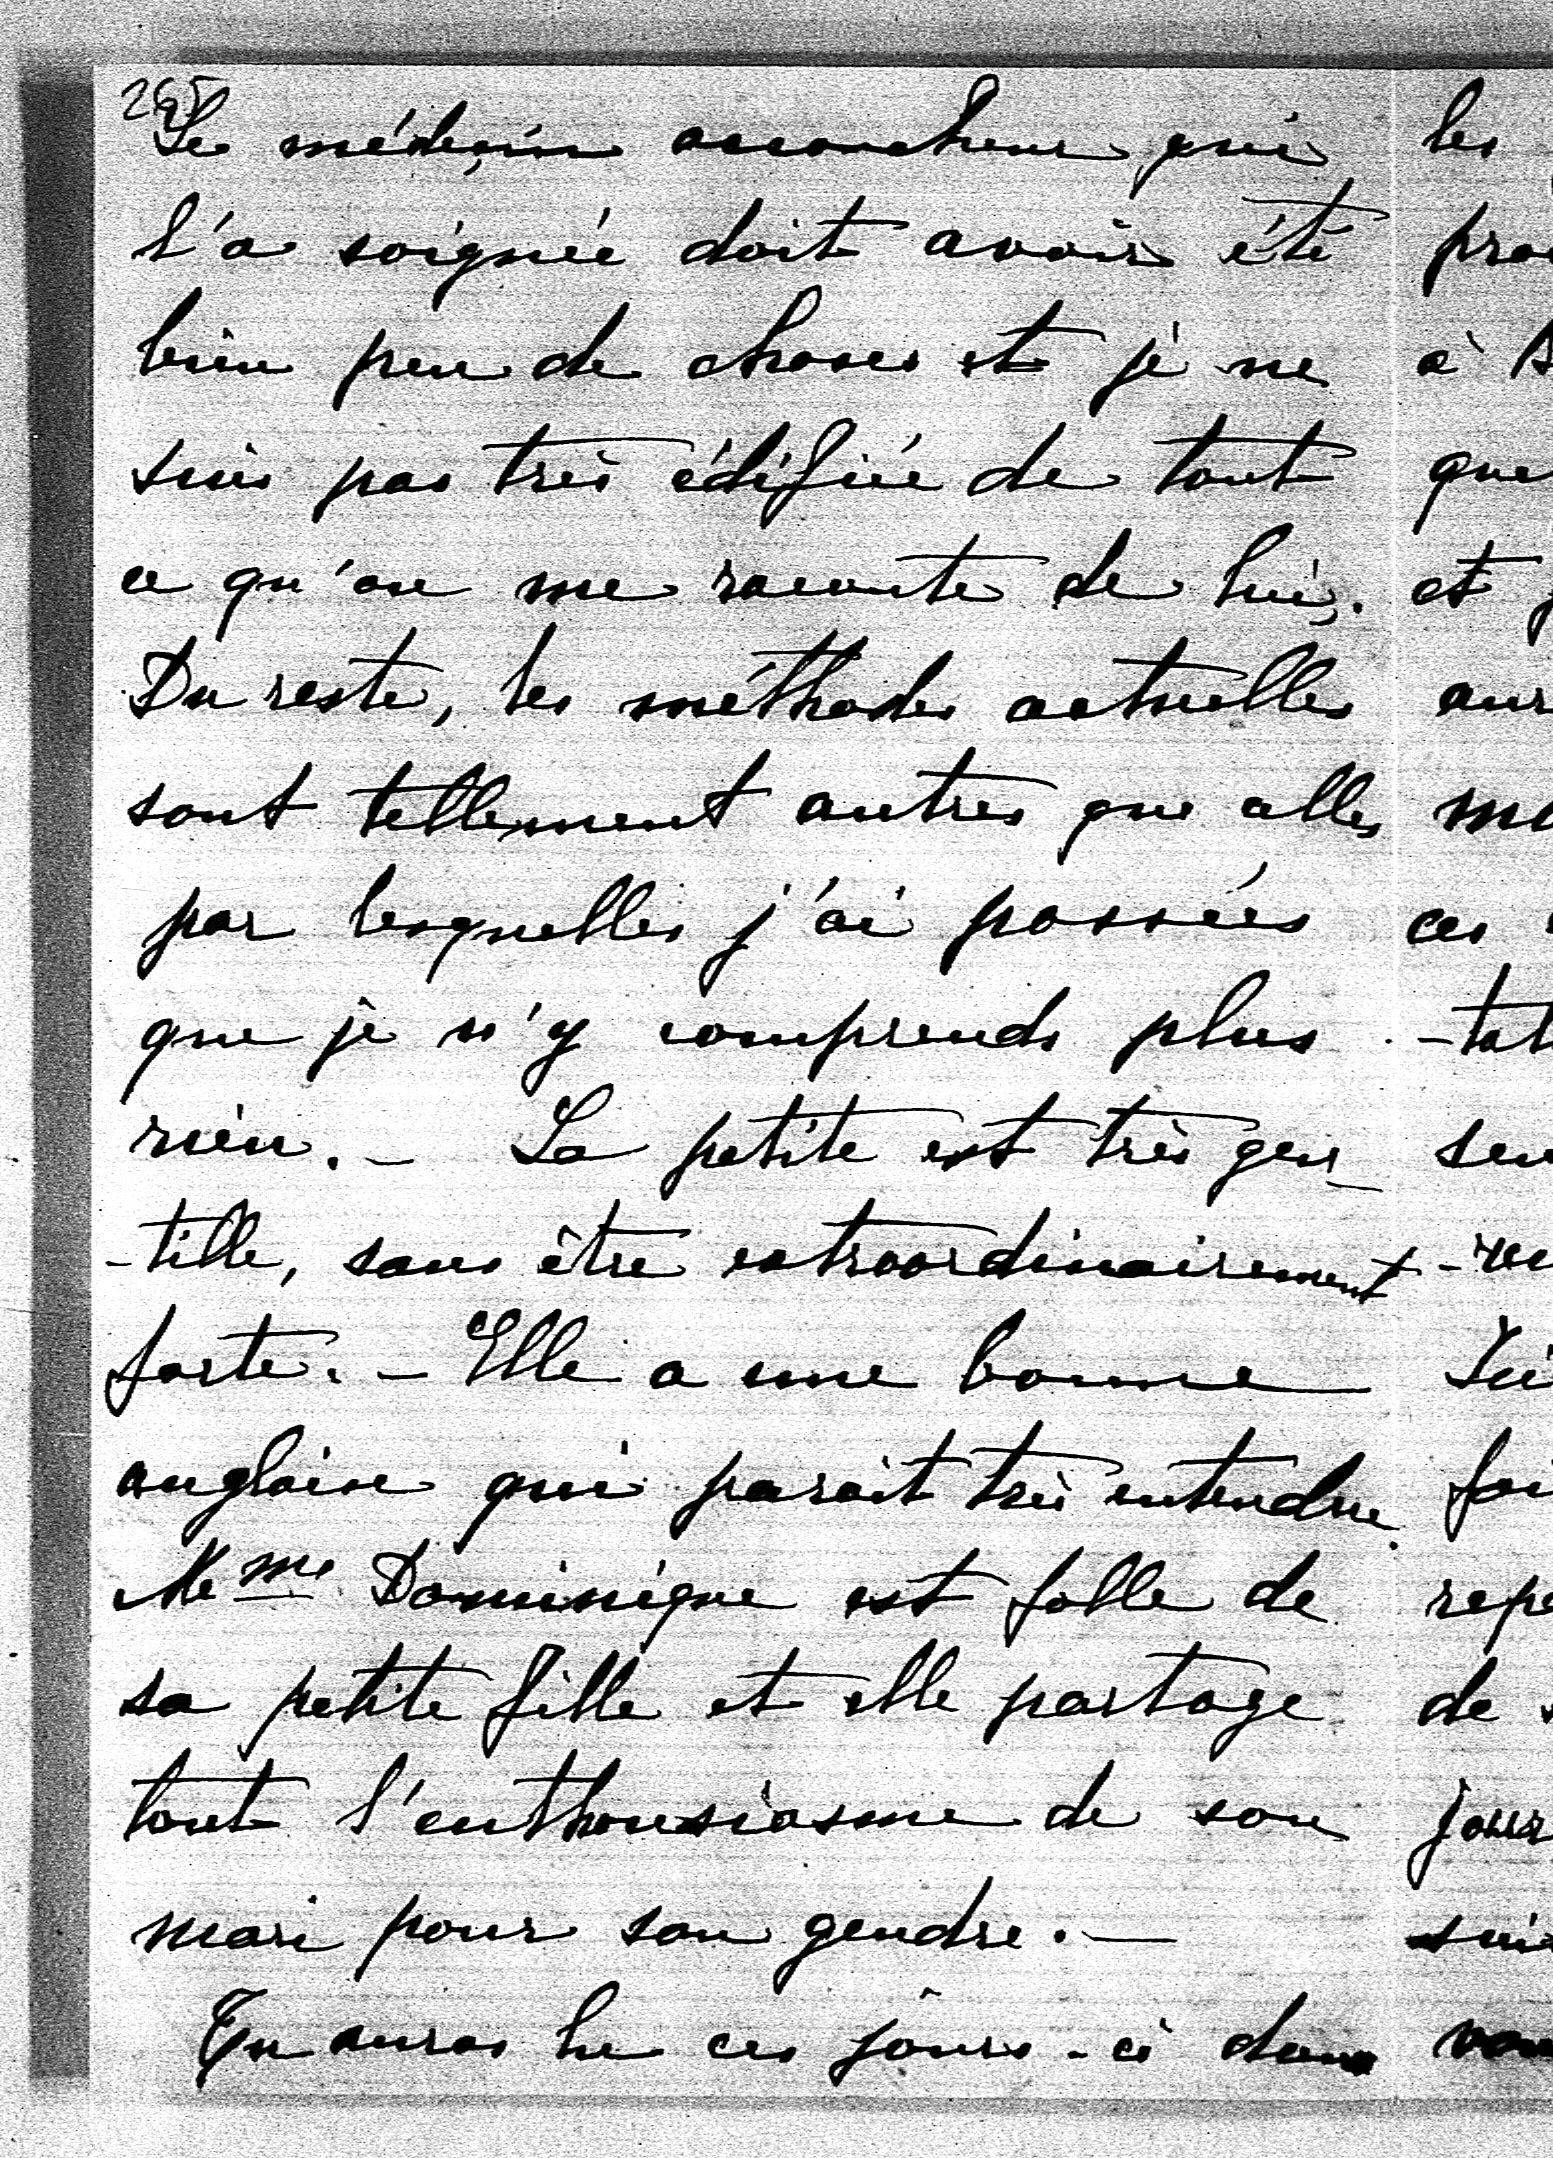 265
Le médecin accoucheur qui
l'a soignée doit avoir été
bien peu de choses et je ne
suis pas très édifiée de tout
ce qu'on me raconte de lui.
Du reste, les méthodes actuelles
sont tellement autres que celles
par lesquelles j'ai passées
que je n'y comprends plus
rien. - La petite est très gen-
-tille, sans être extraordinairement
forte. - Elle a une bonne
anglaise qui parait très entendue.
Mme Dominique est folle de
sa petite fille et elle partage
tout l'enthousiasme de son
mari pour son gendre. -
Tu auras lu ces jours-ci dans
les
à
que
et
ces
de